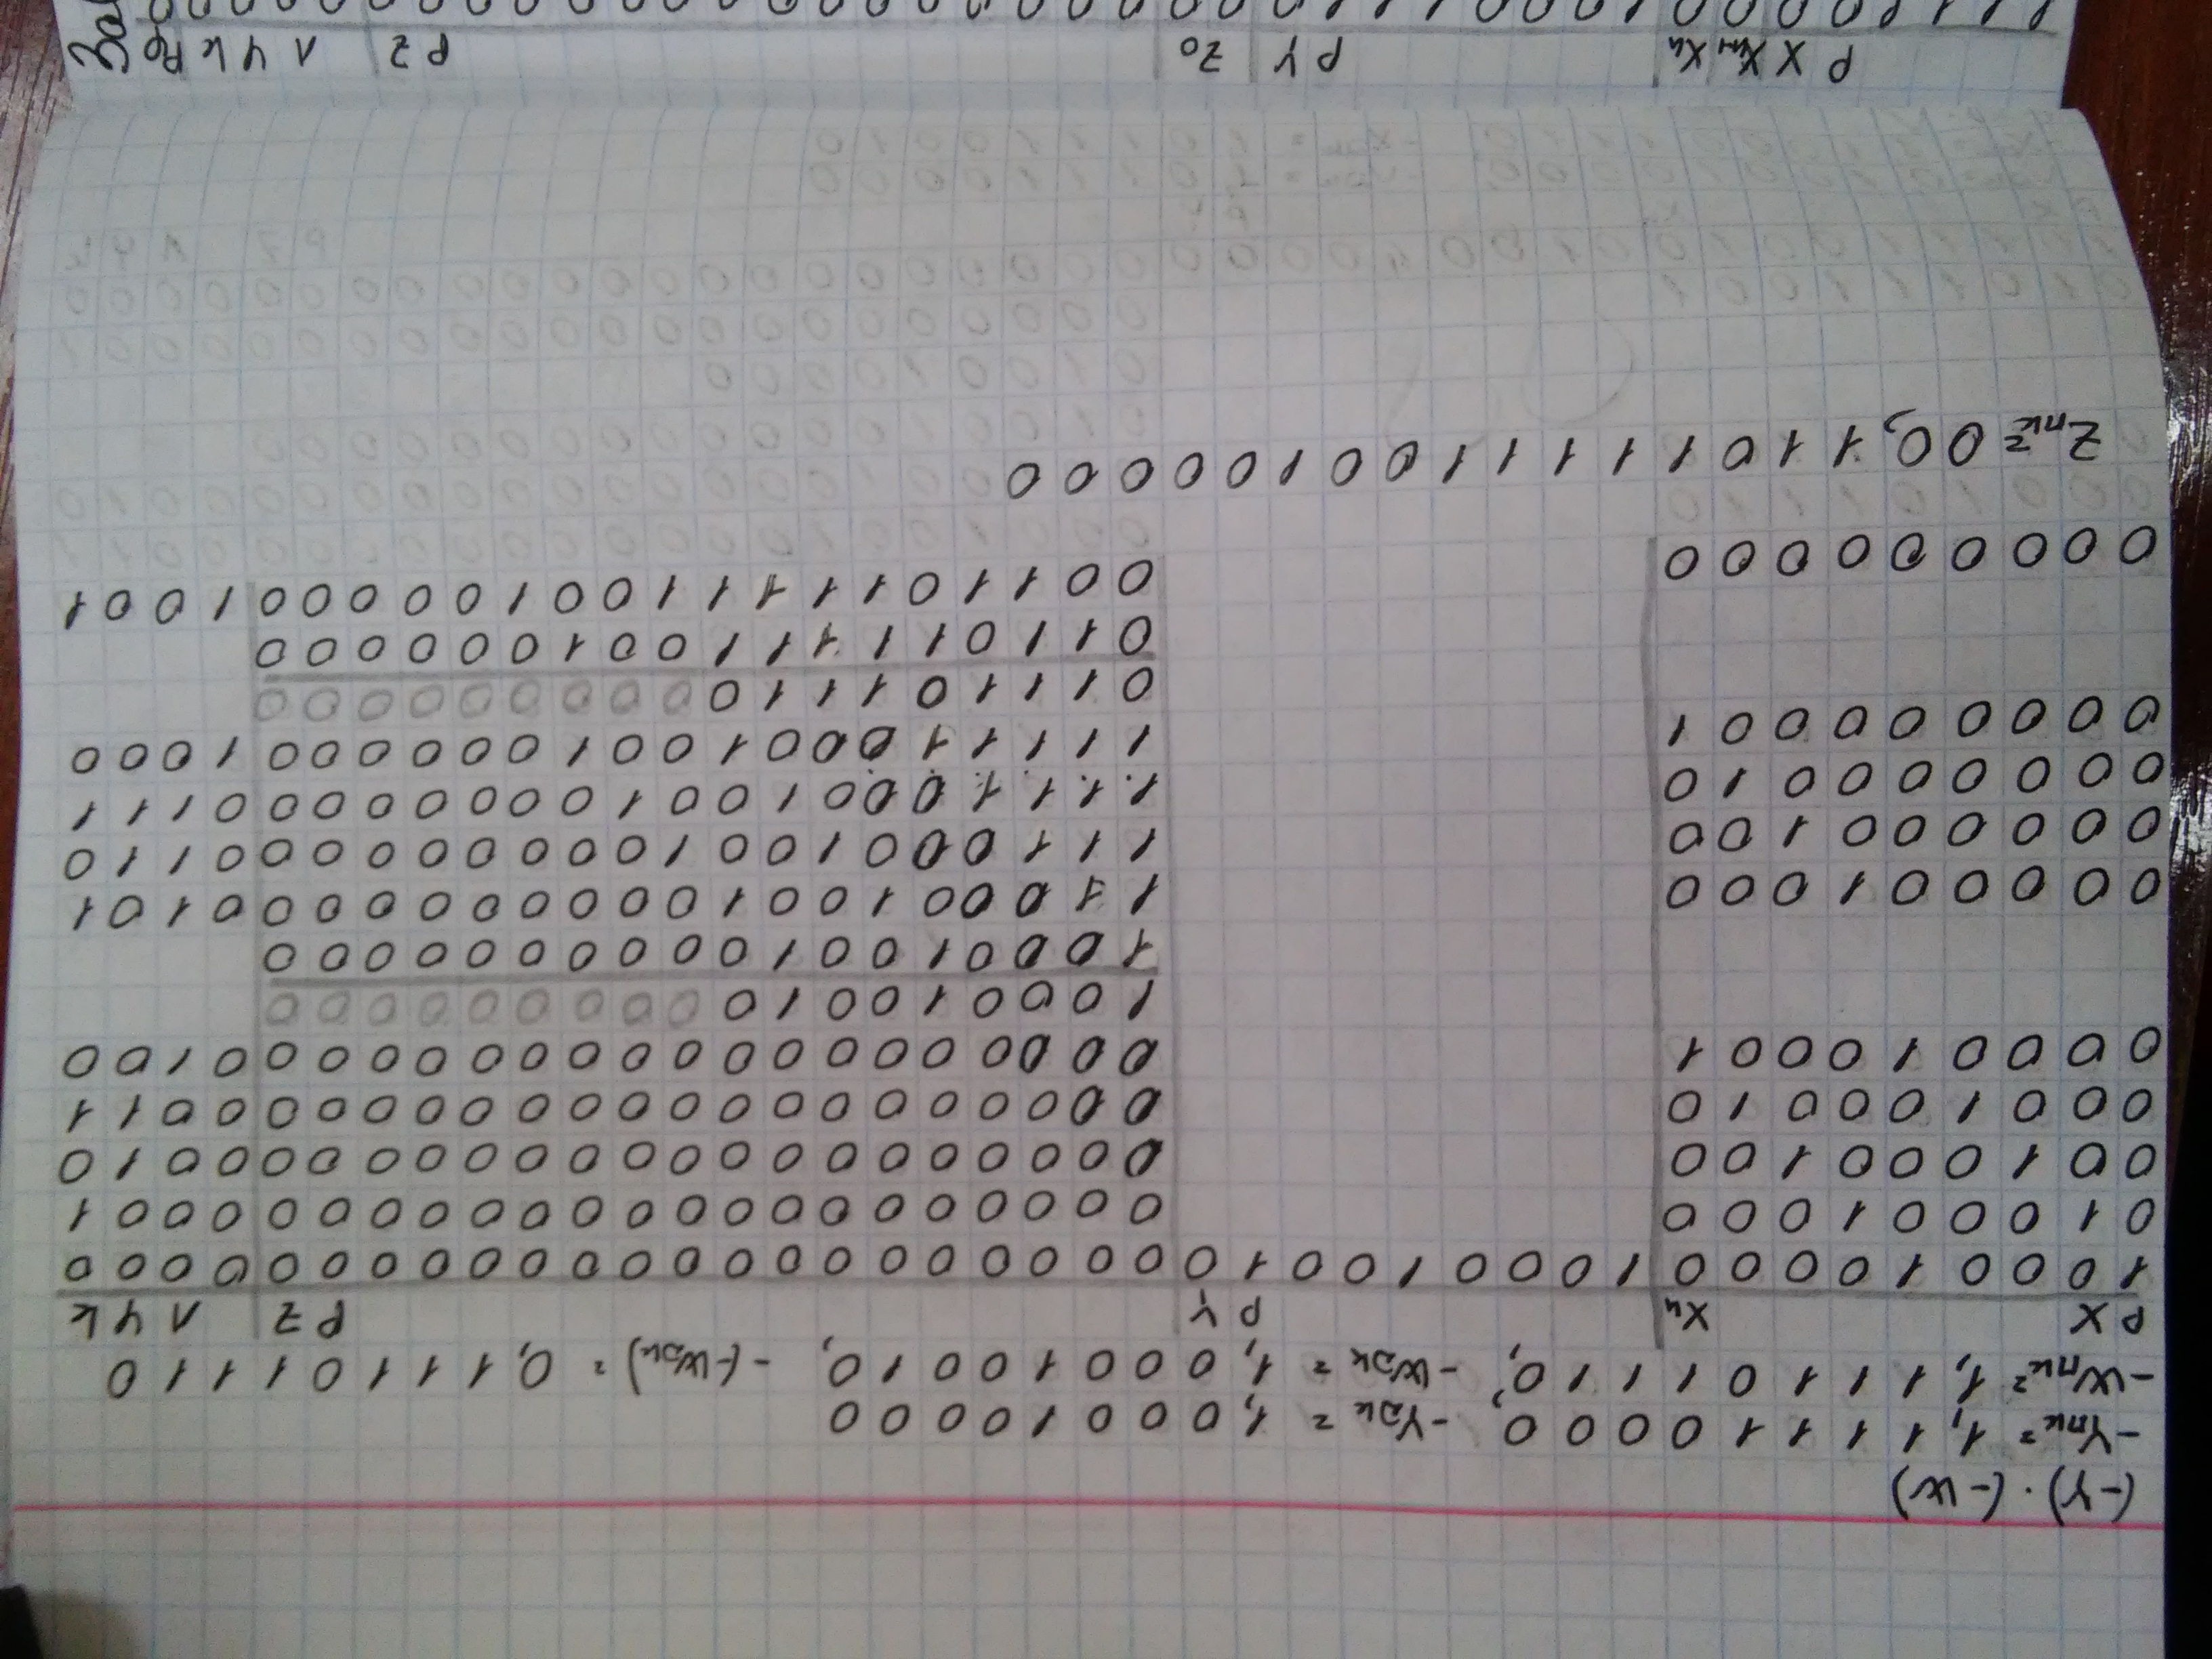 (-Y)·(-W)
-Yпк = 1,11110000, -Yдк = 1,00010000
-Wпк = 1,11101110, -Wдк = 1,00010010, -(-Wдк) = 0,11101110
PX Xn PY PZ ЛЧК
1 0 0 0 1 0 0 0 0 1 0 0 0 1 0 0 1 0 0 0 0 0 0 0 0 0 0 0 0 0 0 0 0 0 0 0 0 0 0 0
0 1 0 0 0 1 0 0 0 0 0 0 0 0 0 0 0 0 0 0 0 0 0 0 0 0 0 0 0 0 1
0 0 1 0 0 0 1 0 0 0 0 0 0 0 0 0 0 0 0 0 0 0 0 0 0 0 0 0 0 1 0
0 0 0 1 0 0 0 1 0 0 0 0 0 0 0 0 0 0 0 0 0 0 0 0 0 0 0 0 0 1 1
0 0 0 0 1 0 0 0 1 0 0 0 0 0 0 0 0 0 0 0 0 0 0 0 0 0 0 0 1 0 0
1 0 0 0 1 0 0 1 0 0 0 0 0 0 0 0 0 0
1 0 0 0 1 0 0 1 0 0 0 0 0 0 0 0 0 0
0 0 0 0 0 1 0 0 0 1 1 0 0 0 1 0 0 1 0 0 0 0 0 0 0 0 0 0 1 0 1
0 0 0 0 0 0 1 0 0 1 1 1 0 0 0 1 0 0 1 0 0 0 0 0 0 0 0 0 1 1 0
0 0 0 0 0 0 0 1 0 1 1 1 1 0 0 0 1 0 0 1 0 0 0 0 0 0 0 0 1 1 1
0 0 0 0 0 0 0 0 1 1 1 1 1 1 0 0 0 1 0 0 1 0 0 0 0 0 0 1 0 0 0
0 1 1 1 0 1 1 1 0 0 0 0 0 0 0 0 0 0
0 1 1 0 1 1 1 1 1 0 0 1 0 0 0 0 0 0
0 0 0 0 0 0 0 0 0 0 0 1 1 0 1 1 1 1 1 0 0 1 0 0 0 0 0 1 0 0 1
Zпк = 00,1101111100100000
P X Xn-1 Xn PY Z0 PZ ЛЧК